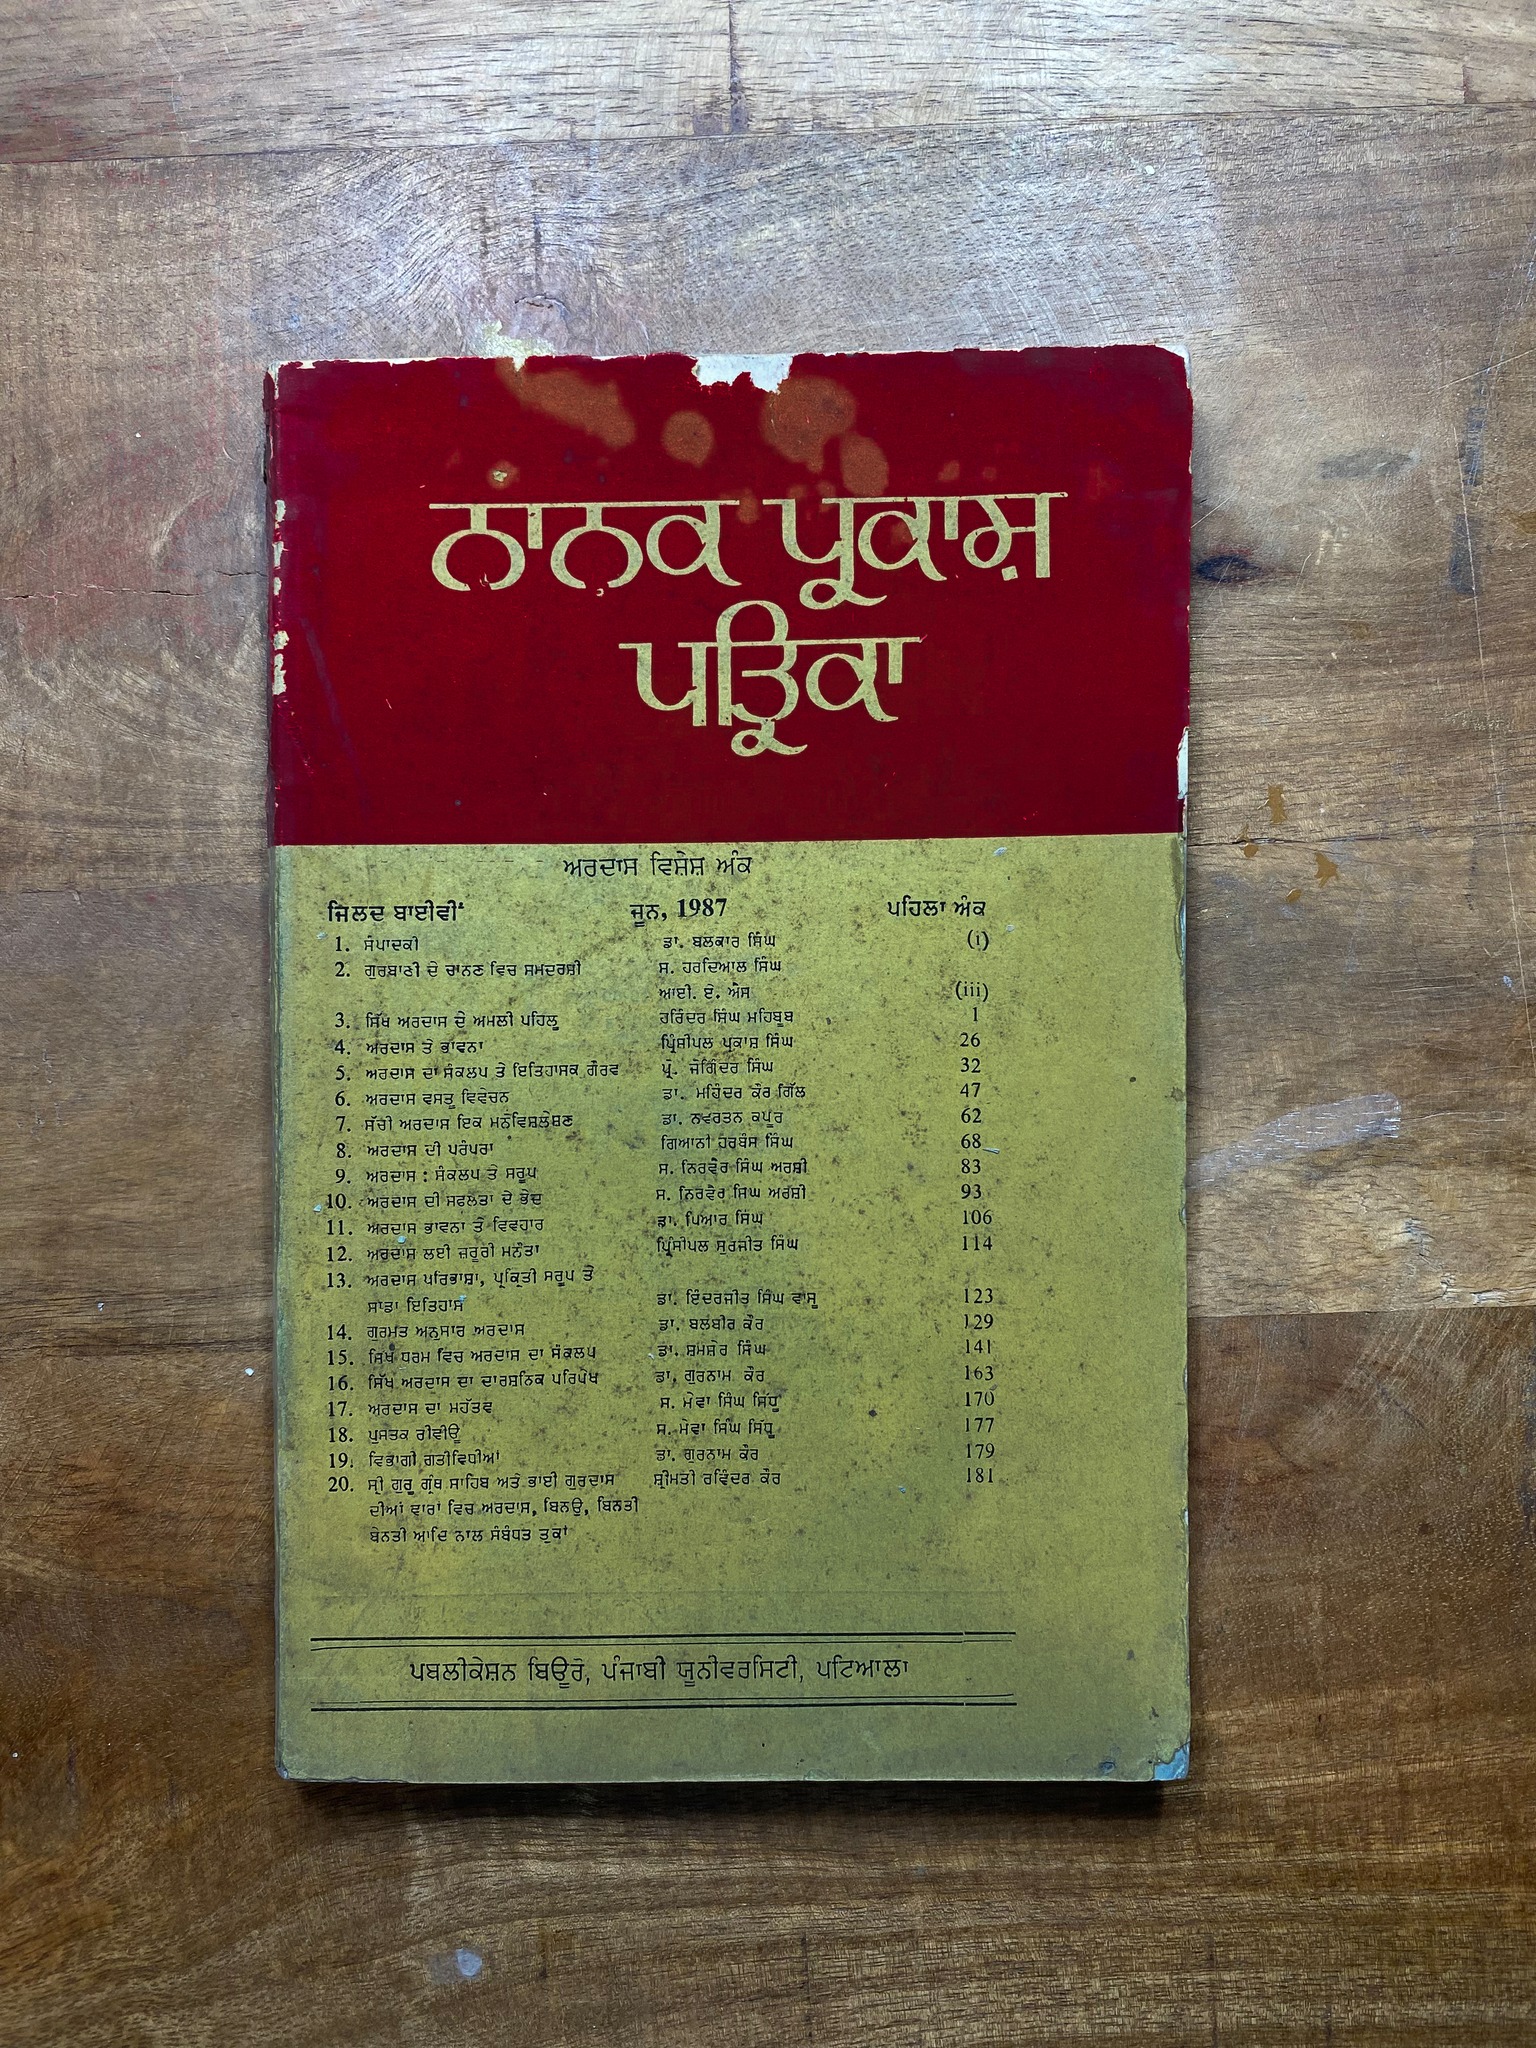 ਨਾਨਕ ਪ੍ਰਕਾਸ਼
ਪਤ੍ਰਿਕਾ
ਅਰਦਾਸ ਵਿਸ਼ੇਸ਼ ਅੰਕ
ਜਿਲਦ ਬਾਈਵੀਂ ਜੂਨ, 1987 ਪਹਿਲਾ ਅੰਕ
1. ਸੰਪਾਦਕੀ ਡਾ. ਬਲਕਾਰ ਸਿੰਘ (i)
2. ਗੁਰਬਾਣੀ ਦੇ ਚਾਨਣ ਵਿਚ ਸਮਦਰਸ਼ੀ ਸ. ਹਰਦਿਆਲ ਸਿੰਘ
ਆਈ. ਏ. ਐਸ (iii)
3. ਸਿੱਖ ਅਰਦਾਸ ਦੇ ਅਮਲੀ ਪਹਿਲੂ ਹਰਿੰਦਰ ਸਿੰਘ ਮਹਿਬੂਬ 1
4. ਅਰਦਾਸ ਤੇ ਭਾਵਨਾ ਪ੍ਰਿੰਸੀਪਲ ਪ੍ਰਕਾਸ਼ ਸਿੰਘ 26
5. ਅਰਦਾਸ ਦਾ ਸੰਕਲਪ ਤੇ ਇਤਿਹਾਸਕ ਗੌਰਵ ਪ੍ਰੋ. ਜੋਗਿੰਦਰ ਸਿੰਘ 32
6. ਅਰਦਾਸ ਵਸਤੂ ਵਿਵੇਚਨ ਡਾ. ਮਹਿੰਦਰ ਕੌਰ ਗਿੱਲ 47
7. ਸੱਚੀ ਅਰਦਾਸ ਇਕ ਮਨੋਵਿਸ਼ਲੇਸ਼ਣ ਡਾ. ਨਵਰਤਨ ਕਪੂਰ 62
8. ਅਰਦਾਸ ਦੀ ਪਰੰਪਰਾ ਗਿਆਨੀ ਹਰਬੰਸ ਸਿੰਘ 68
9. ਅਰਦਾਸ : ਸੰਕਲਪ ਤੇ ਸਰੂਪ ਸ. ਨਿਰਵੈਰ ਸਿੰਘ ਅਰਸ਼ੀ 83
10. ਅਰਦਾਸ ਦੀ ਸਫਲਤਾ ਦੇ ਭੇਦ ਸ. ਨਿਰਵੈਰ ਸਿੰਘ ਅਰਸ਼ੀ 93
11. ਅਰਦਾਸ ਭਾਵਨਾ ਤੇ ਵਿਵਹਾਰ ਡਾ. ਪਿਆਰ ਸਿੰਘ 106
12. ਅਰਦਾਸ ਲਈ ਜ਼ਰੂਰੀ ਮਨੌਤਾ ਪ੍ਰਿੰਸੀਪਲ ਸੁਰਜੀਤ ਸਿੰਘ 114
13. ਅਰਦਾਸ ਪਰਿਭਾਸ਼ਾ, ਪ੍ਰਕ੍ਰਿਤੀ ਸਰੂਪ ਤੇ
ਸਾਡਾ ਇਤਿਹਾਸ ਡਾ. ਇੰਦਰਜੀਤ ਸਿੰਘ ਵਾਸੂ 123
14. ਗੁਰਮਤ ਅਨੁਸਾਰ ਅਰਦਾਸ ਡਾ. ਬਲਬੀਰ ਕੌਰ 129
15. ਸਿੱਖ ਧਰਮ ਵਿਚ ਅਰਦਾਸ ਦਾ ਸੰਕਲਪ ਡਾ. ਸ਼ਮਸ਼ੇਰ ਸਿੰਘ 141
16. ਸਿੱਖ ਅਰਦਾਸ ਦਾ ਦਾਰਸ਼ਨਿਕ ਪਰਿਪੇਖ ਡਾ. ਗੁਰਨਾਮ ਕੌਰ 163
17. ਅਰਦਾਸ ਦਾ ਮਹੱਤਵ ਸ. ਮੇਵਾ ਸਿੰਘ ਸਿੱਧੂ 170
18. ਪੁਸਤਕ ਰੀਵੀਊ ਸ. ਮੇਵਾ ਸਿੰਘ ਸਿੱਧੂ 177
19. ਵਿਭਾਗੀ ਗਤੀਵਿਧੀਆਂ ਡਾ. ਗੁਰਨਾਮ ਕੌਰ 179
20. ਸ੍ਰੀ ਗੁਰੂ ਗ੍ਰੰਥ ਸਾਹਿਬ ਅਤੇ ਭਾਈ ਗੁਰਦਾਸ ਸ਼੍ਰੀਮਤੀ ਰਵਿੰਦਰ ਕੌਰ 181
ਦੀਆਂ ਵਾਰਾਂ ਵਿਚ ਅਰਦਾਸ, ਬਿਨਉ, ਬਿਨਤੀ
ਬੇਨਤੀ ਆਦਿ ਨਾਲ ਸੰਬੰਧਤ ਤੁਕਾਂ
ਪਬਲੀਕੇਸ਼ਨ ਬਿਊਰੋ, ਪੰਜਾਬੀ ਯੂਨੀਵਰਸਿਟੀ, ਪਟਿਆਲਾ